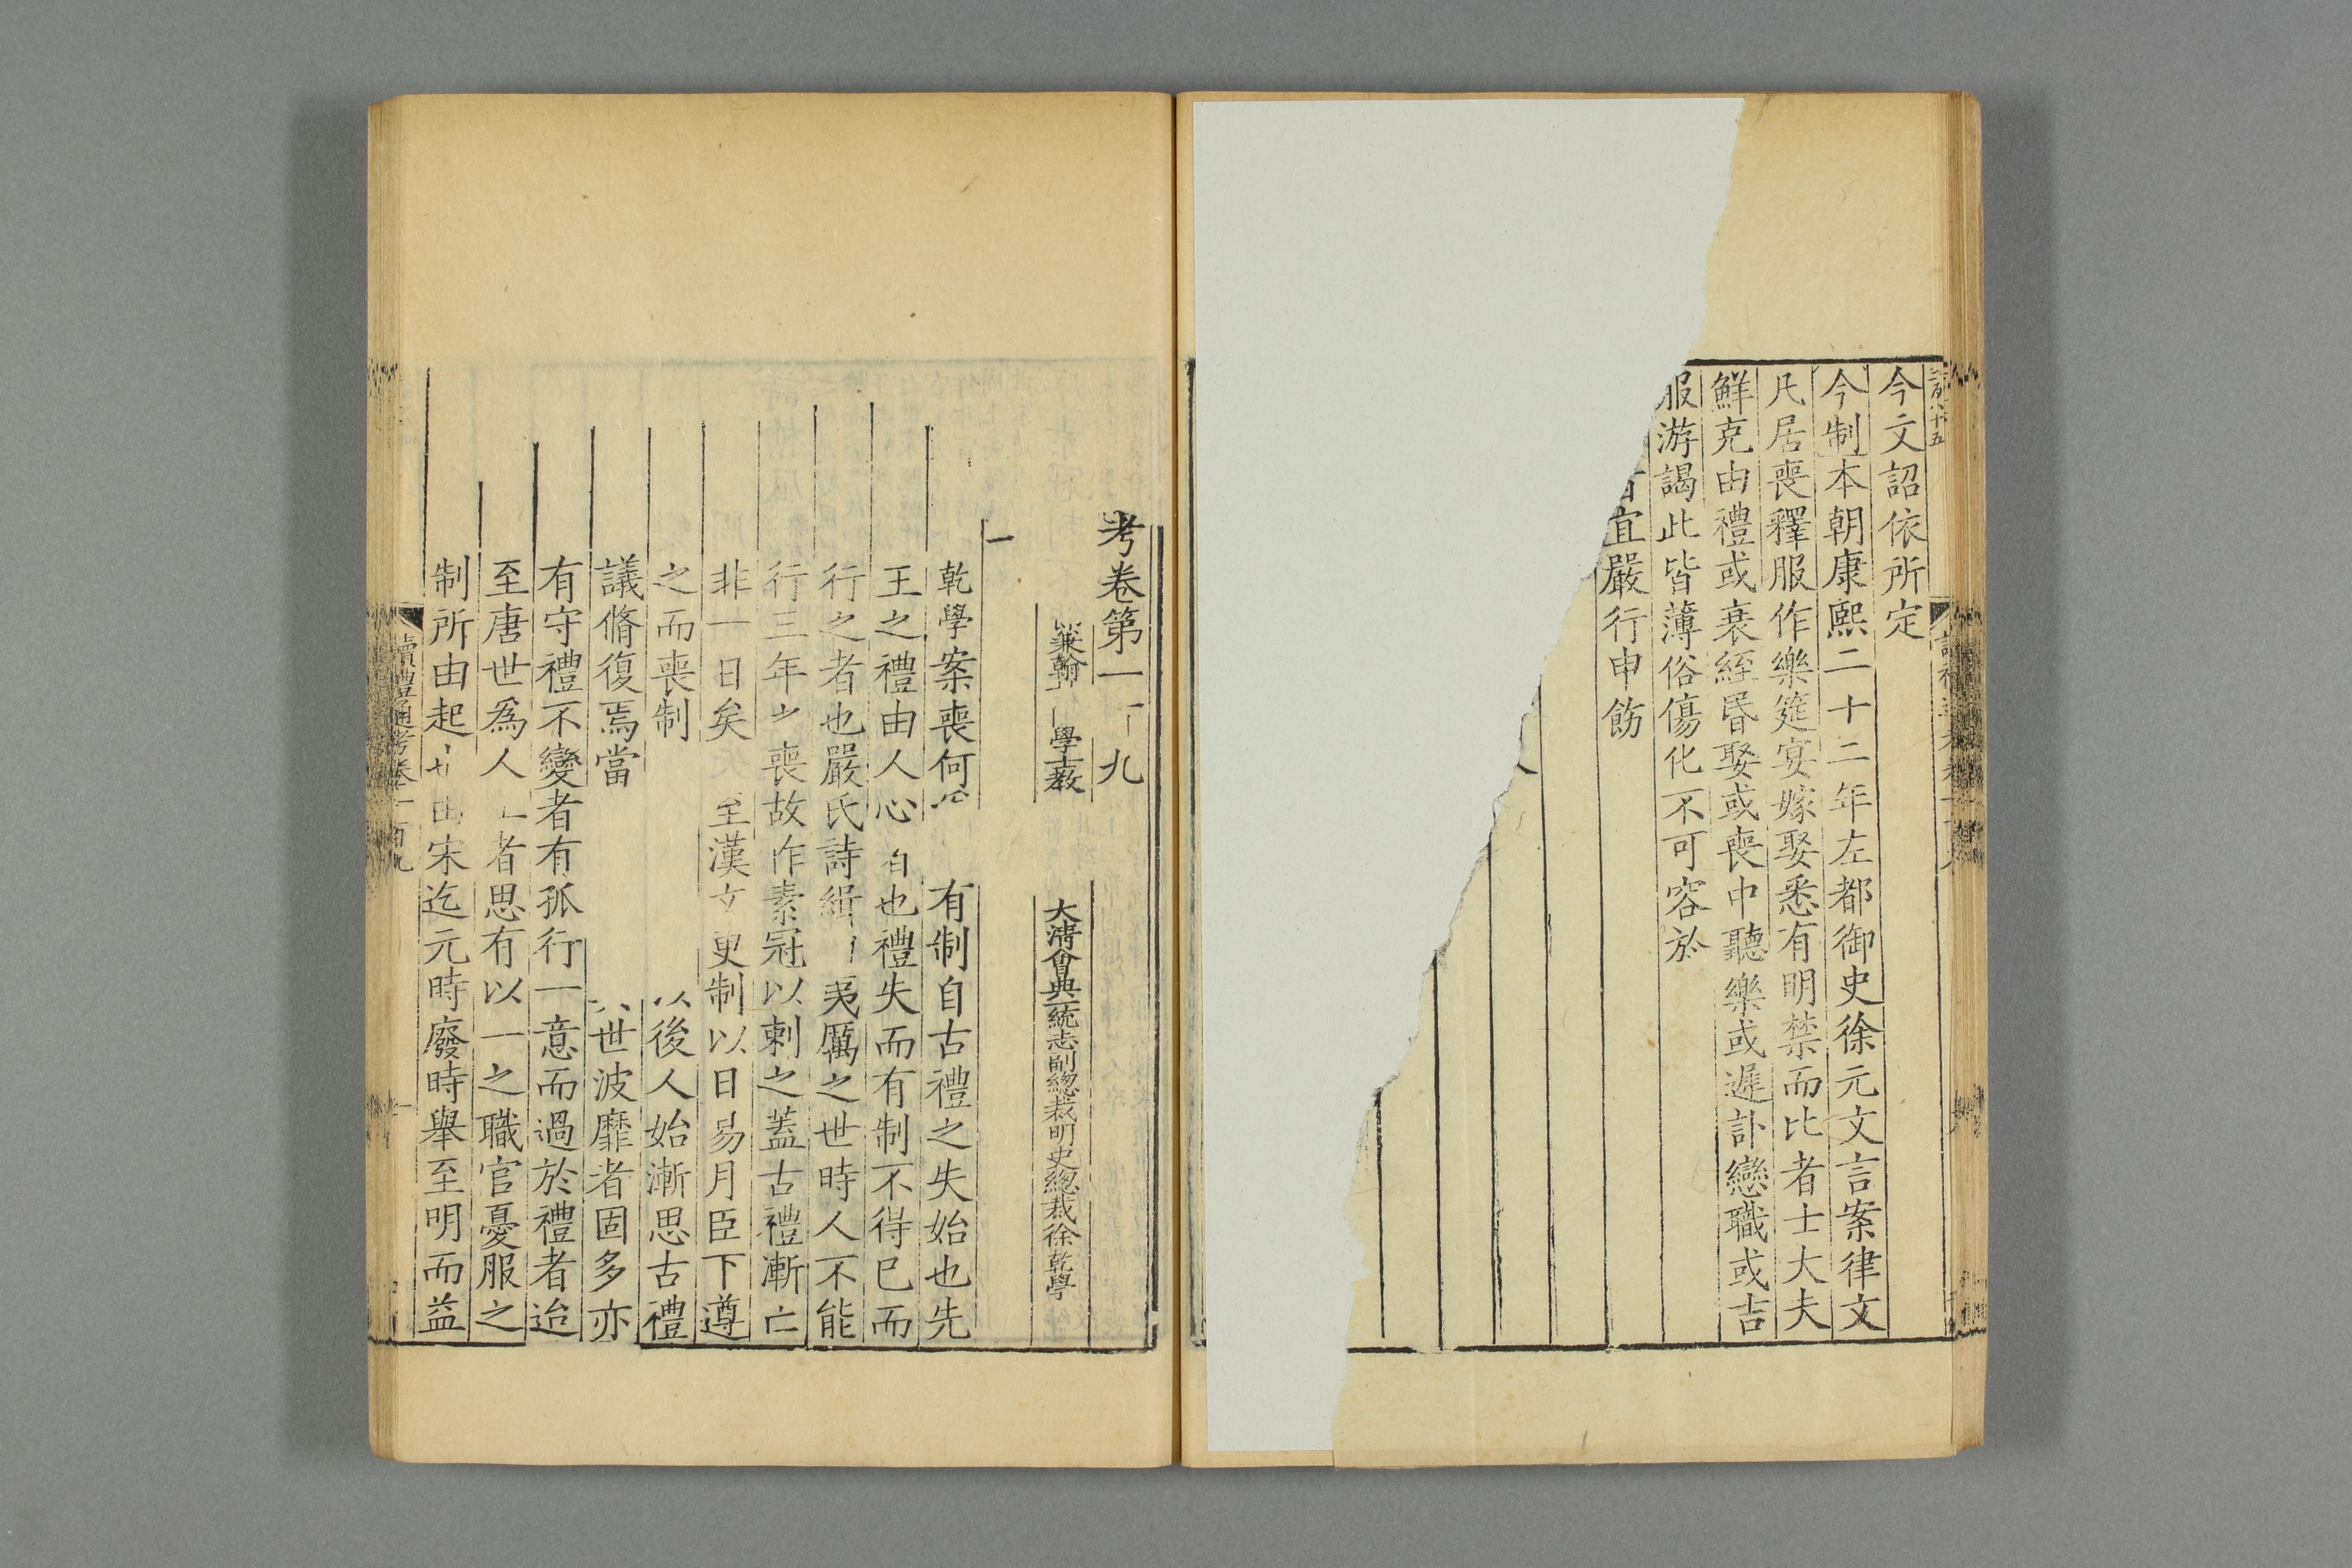 今文詔依所定
今制本朝康熙二十二年左都御史徐元文言案律文
凡居喪釋服作樂筵宴嫁娶悉有明禁而比者士大夫
鮮克由禮或衰絰昏娶或喪中聽樂或遲訃戀職或吉
服游謁此皆薄俗傷化不可容於
宜嚴行申飭
考卷第一 九
兼翰 學士教
大清會典一統志副總裁明史總裁徐乾學
乾學案喪何 有制自古禮之失始也先
王之禮由人心 也禮失而有制不得已而
行之者也嚴氏詩緝 夷厲之世時人不能
行三年 喪故作素冠以刺之蓋古禮漸亡
非一日矣 至漢文更制以日易月臣下遵
之而喪制 以後人始漸思古禮
議脩復焉當 世波靡者固多亦
有守禮不變者有孤行一意而過於禮者迨
至唐世為人 者思有以一之職官憂服之
制所由起 宋迄元時廢時舉至明而益
讀禮通考卷一百九